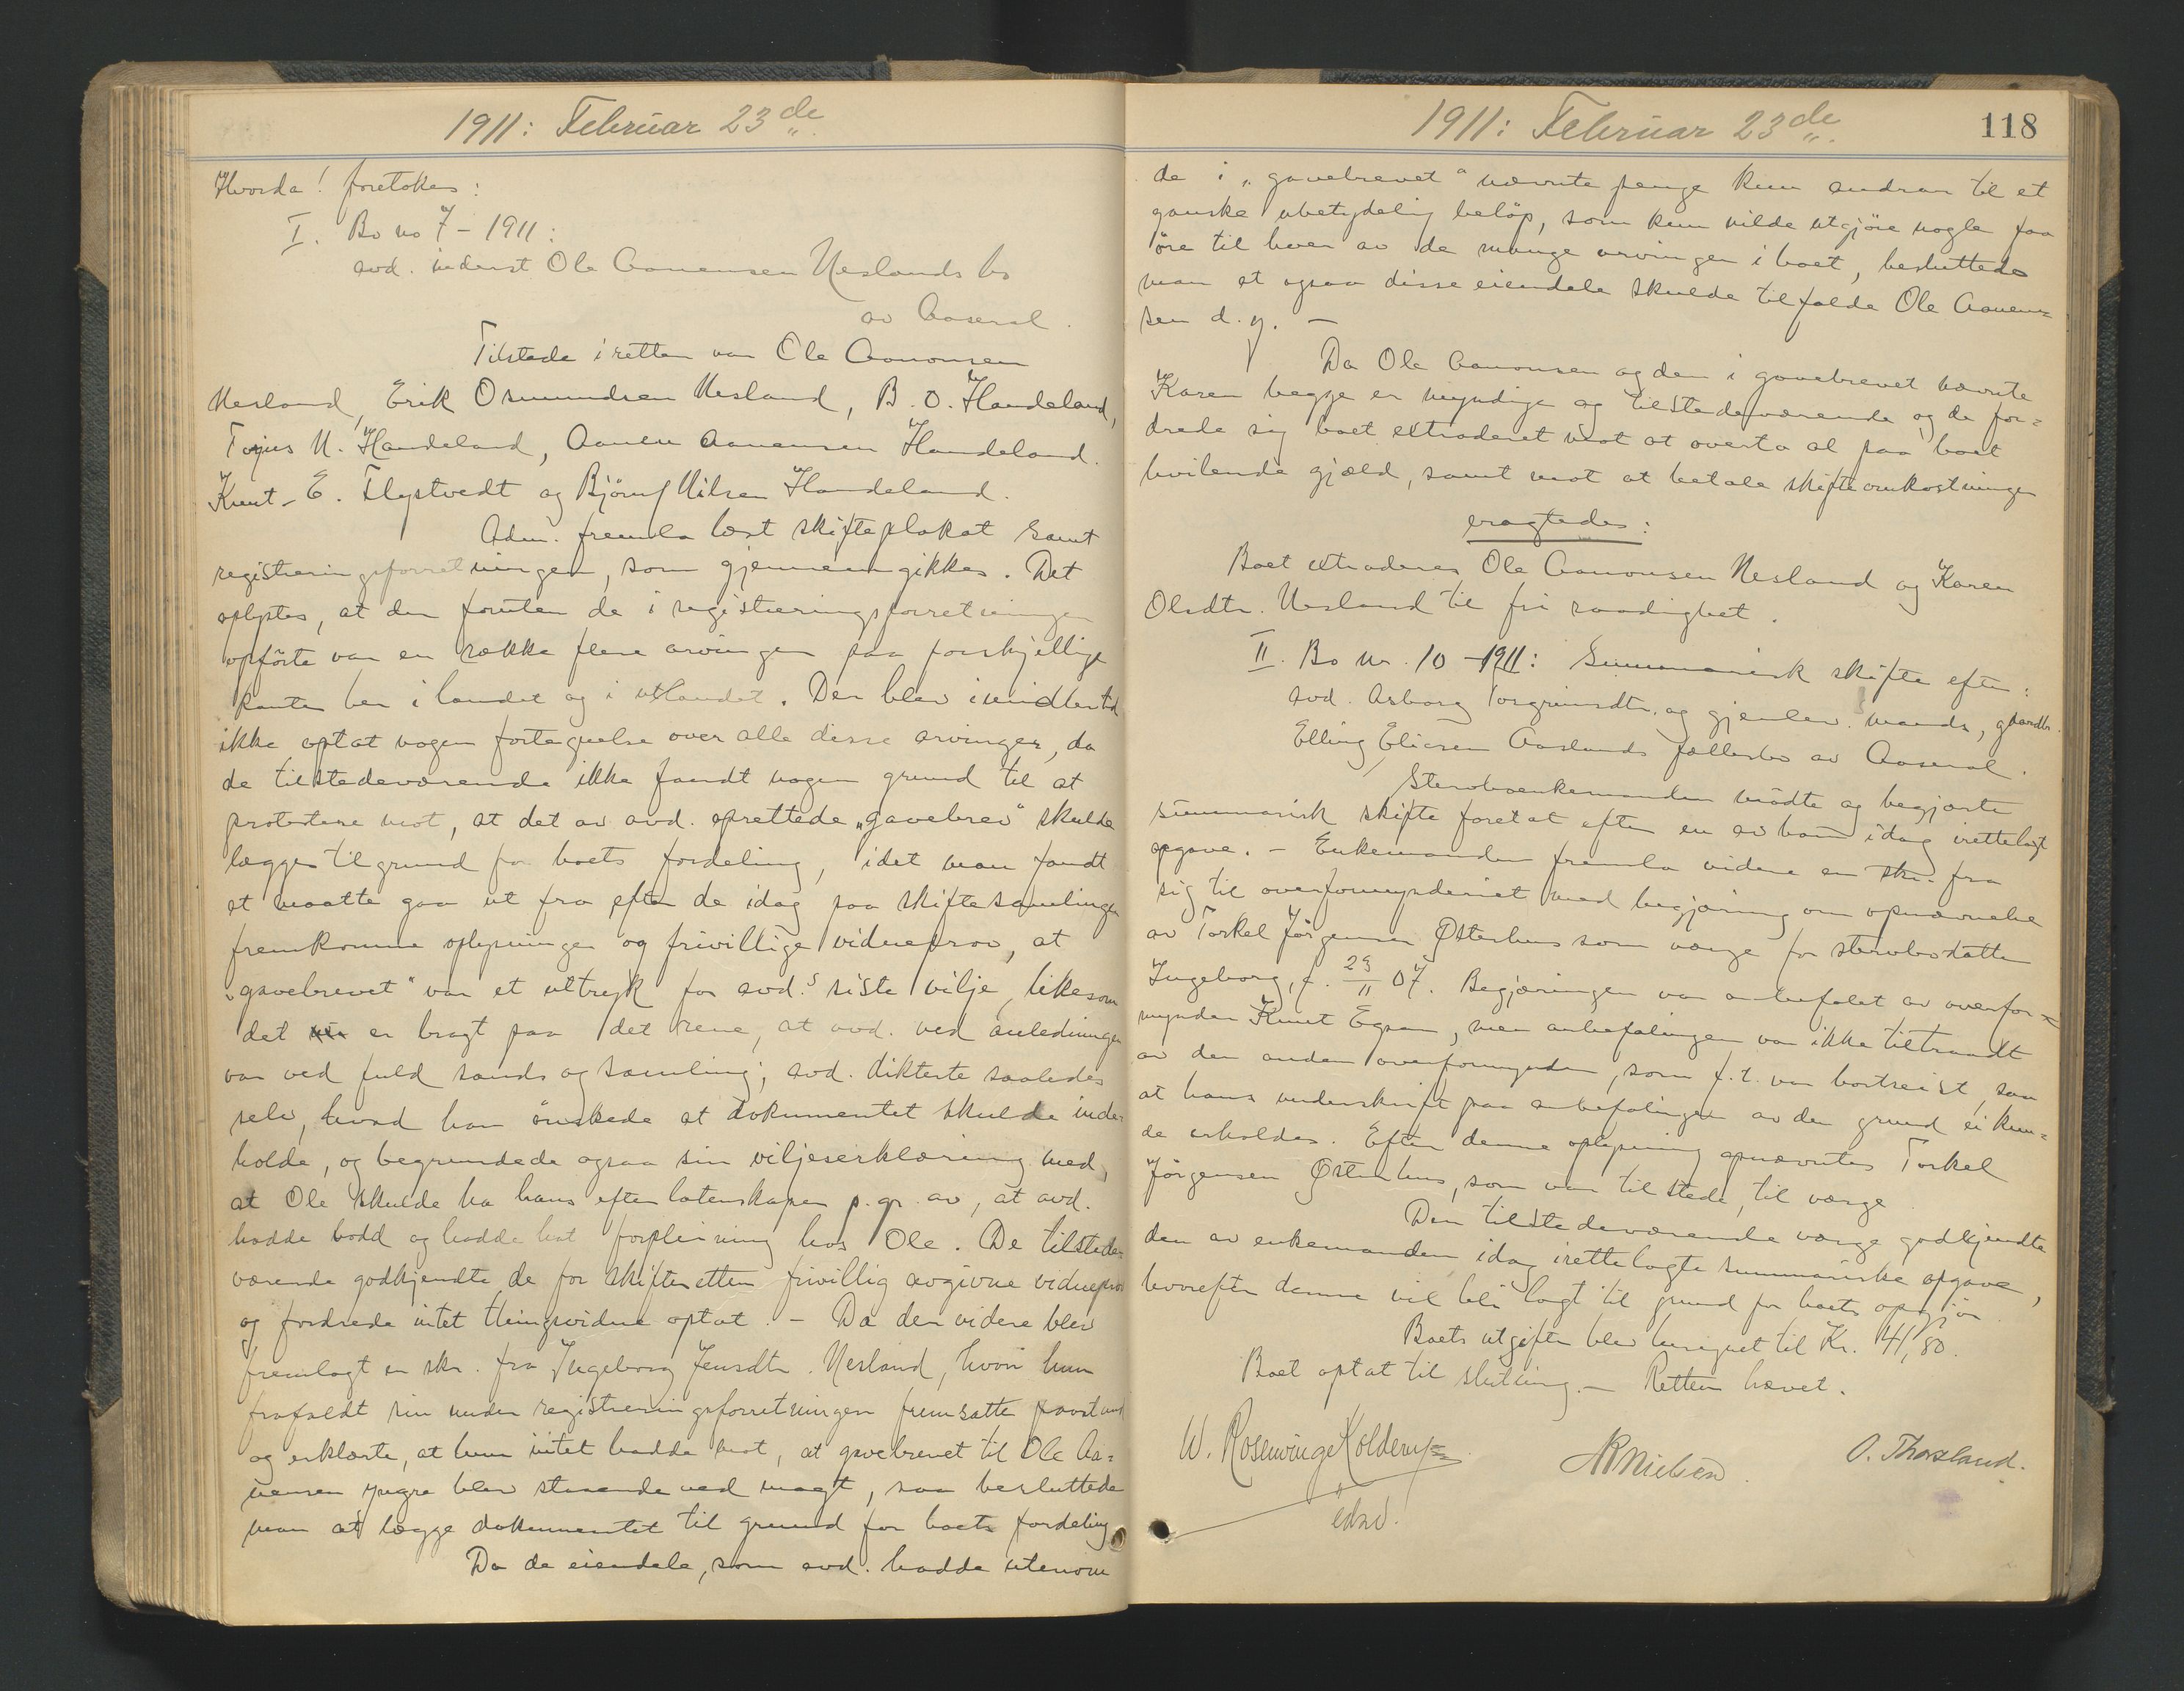 1911: Februar 23de
Hvorda! foretokes:
I. Bo no 7 - 1911:
avd. inderst Ole Aanensen Neslands bo
av Aaseral.
Tilstede i retten var Ole Aanonsen
Nesland, Erik Osmundsen Nesland, B. O. Handeland,
Torjus N. Handeland, Aanen Aanensen Handeland.
Knut E. Flystvedt og Björn Nilsen Handeland.
Adm. fremla læst skifteplakat samt
registreringsforretningen, som gjennemgikkes. Det
oplystes, at der foruten de i registreringsforretningen
opförte var en række flere arvinger paa forskjellige
kanter her i landet og i utlandet. Der blev imidlertid
ikke optat nogen fortegnelse over alle disse arvinger, da
de tilstedeværende ikke fandt nogen grund til at
protestere mot, at det av avd. oprettede „gavebrev" skulde
lægges til grund for boets fordeling, idet man fandt
at maatte gaa ut fra efter de idag paa skiftesamlingen
fremkomne oplysninger og frivillige vidneprov, at
„gavebrevet" var et uttryk for avd.s siste vilje, likesom
det er bragt paa det rene, at avd. ved anledningen
var ved fuld sands og samling; avd. dikterte saaledes
selv, hvad han önskede at dokumentet skulde inde-
holde, og begrundede ogsaa sin viljeserklæring med,
at Ole skulde ha hans efterlatenskaper p. gr. av, at avd.
hadde bodd og hadde hat forpleining hos Ole. De tilstede-
værende godkjendte de for skifteretten frivillig avgivne vidneprov
og fordrede intet thingsvidne optat. - Da der videre blev
fremlagt en skr. fra Ingeborg Jensdtr. Nesland, hvori hun
frafaldt sin under registreringsforretningen fremsatte paastand
og erklærte, at hun intet hadde mot, at gavebrevet til Ole Aa-
nensen yngre blev staaende ved magt, saa besluttede
man at lægge dokumentet til grund for boets fordeling
Da de eiendele, som avd. hadde utenom
1911: Februar 23de
118
de i „gavebrevet" nævnte penge kun androg til et
ganske ubetydelig belöp, som kun vilde utgjöre nogle faa
öre til hver av de mange arvinger i boet, besluttedes
man at ogsaa disse eiendele skulde tilfalde Ole Aanen-
sen d. y. -
Da Ole Aanonsen og den i gavebrevet nævnte
Karen begge er myndige og tilstedeværende og de for-
drede sig boet extraderet mot at overta al paa boet
hvilende gjæld, samt mot at betale skifteomkostninger
eragtedes:
Boet extraderes Ole Aanonsen Nesland og Karen
Olsdtr. Nesland til fri raadighet.
II. Bo nr. 10 - 1911: Summarisk skifte efter:
avd. Asborg Torgrimsdtr. og gjenlev. mands, gaardbr.
Elling Eliesen Aaslands fællesbo av Aaseral.
Stervboenkemanden mödte og begjærte
summarisk skifte foretat efter en av ham idag irettelagt
opgave. - Enkemanden fremla videre en skr. fra
sig til overformynderiet med begjæring om opnævnelse
av Torkel Jörgensen Østerhus som værge for stervbodatter
Ingeborg, f. 29/11 07. Begjæringen var anbefalet av overfor-
mynder Knut Egsaa, men anbefalingen var ikke tiltraadt
av den anden overformynder, som f. t. var bortreist, saa
at hans underskrift paa anbefalingen av den grund ei kun-
de erholdes. Efter denne oplysning opnævntes Torkel
Jörgensen Østerhus, som var tilstede, til værge
Den tilstedeværende værge godkjendte
den av enkemanden idag irettelagte summariske opgave,
hvorefter denne vil bli lagt til grund for boets opgjör
Boets utgifter blev beregnet til Kr. 41,80.
Boet optat til slutning. - Retten hævet.
W. Rosenvinge Kolderup
edsv.
N Nielsen.
O. Thorsland.